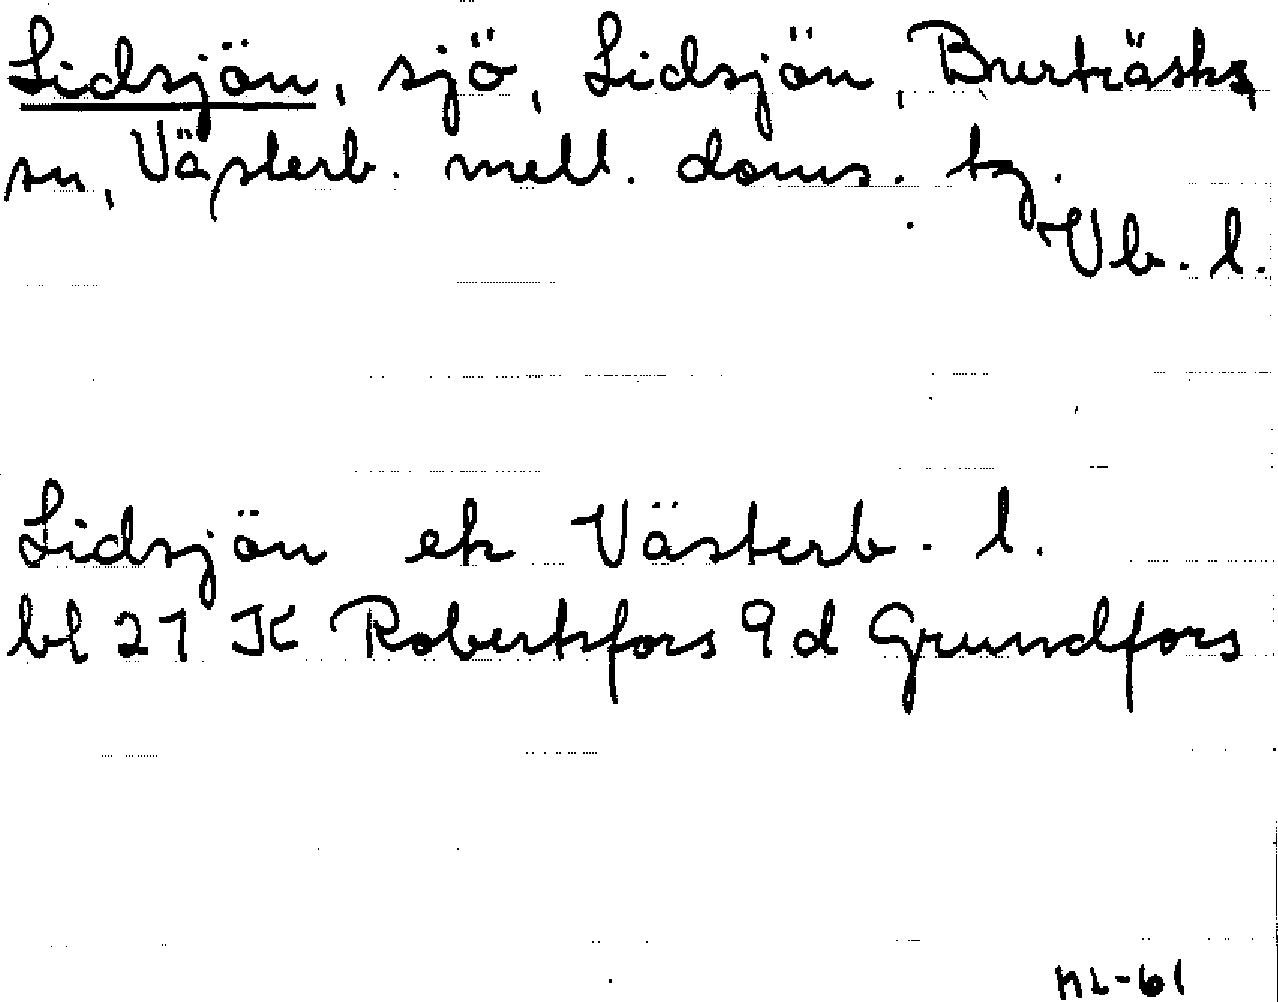 Lidsjön, sjö, Lidsjön, Burträsks
sn, Västerb. mell. doms. tg.
Vb. l.
Lidsjön ek Västerb. l.
bl 21 K Robertsfors 9d Grundfors